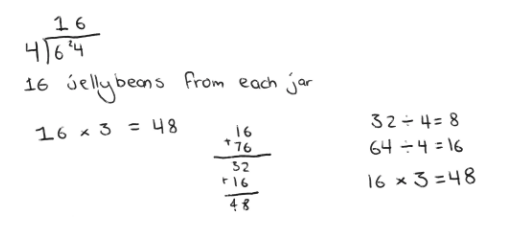 16
4)6²4
16 jellybeans from each jar
16 × 3 = 48
16
+76
32
+16
48
32 ÷ 4 = 8
64 ÷ 4 = 16
16 × 3 = 48